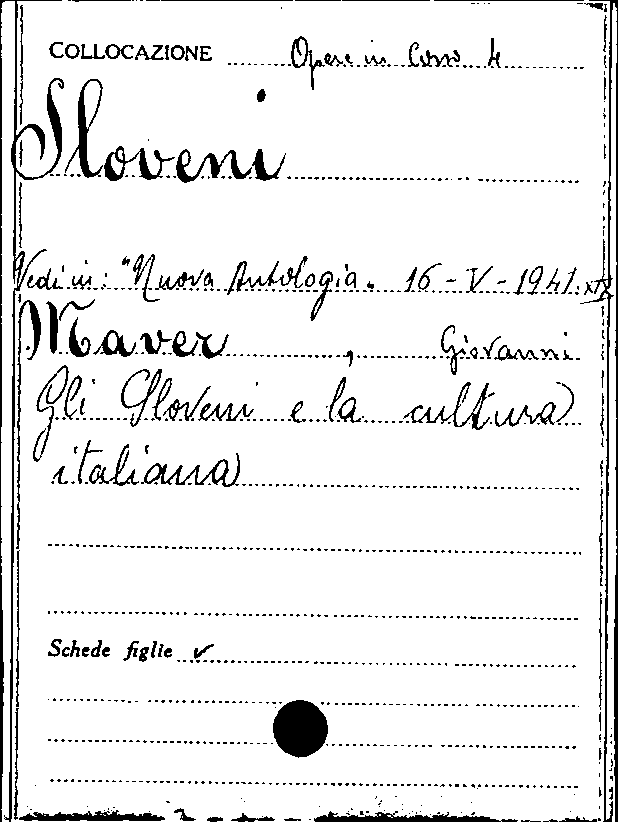 COLLOCAZIONE Opere in Corso 4
Sloveni
Vedi in: "Nuova Antologia„ 16-V-1941.XIX
Maver, Giovanni
Gli Sloveni e la cultura
italiana
Schede figlie ✓